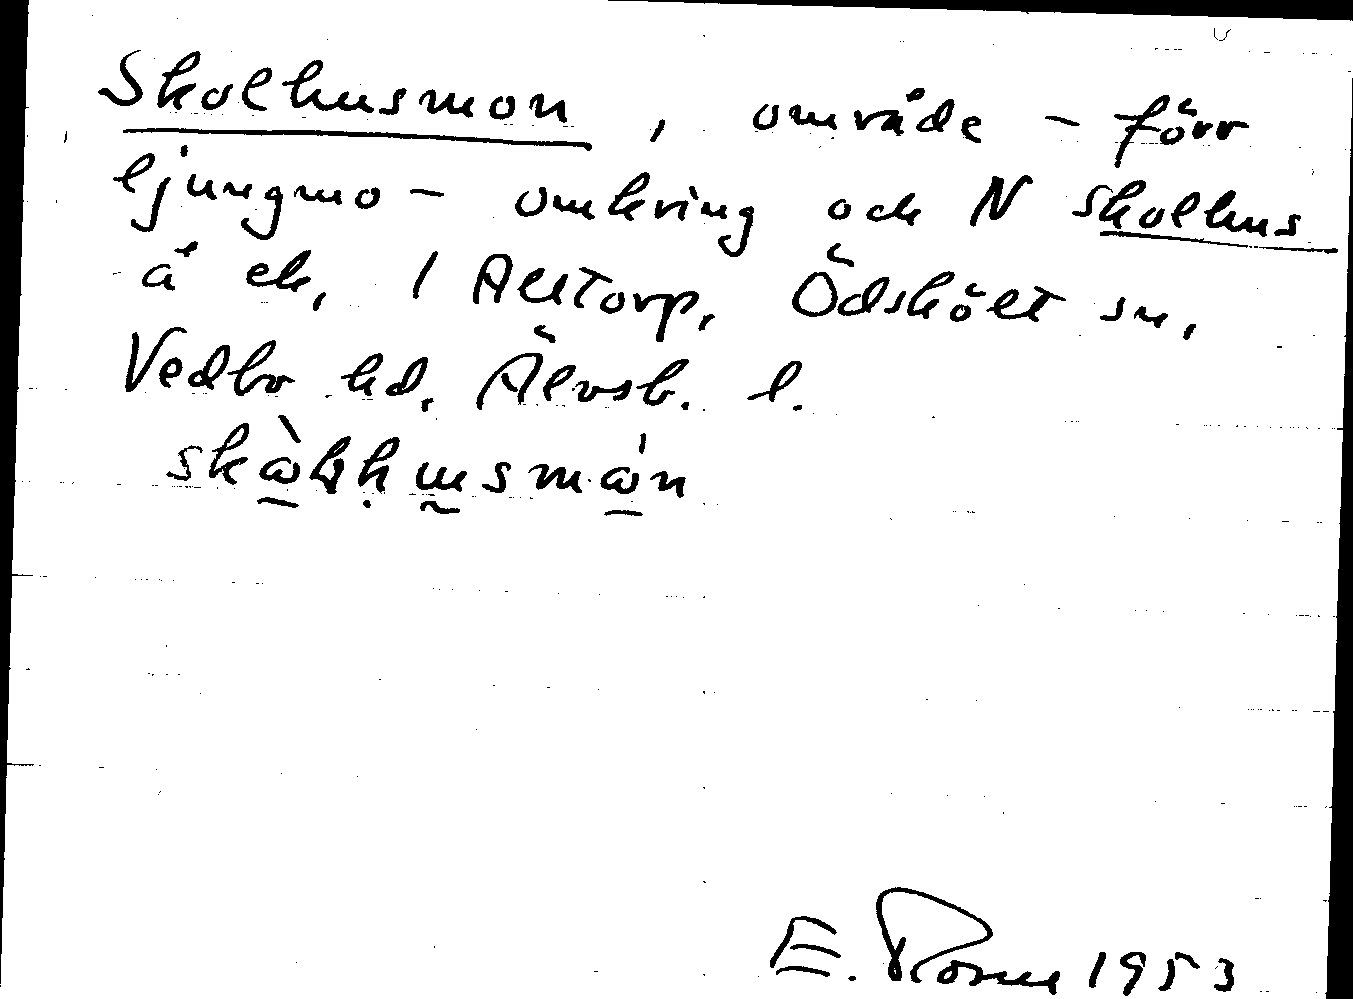 Skolhusmon, område - förr
ljungmo - omkring och N Skolhus
å ek, 1 Alltorp, Ödskölt sn,
Vedbo hd, Älvsb. l.
E. 1953